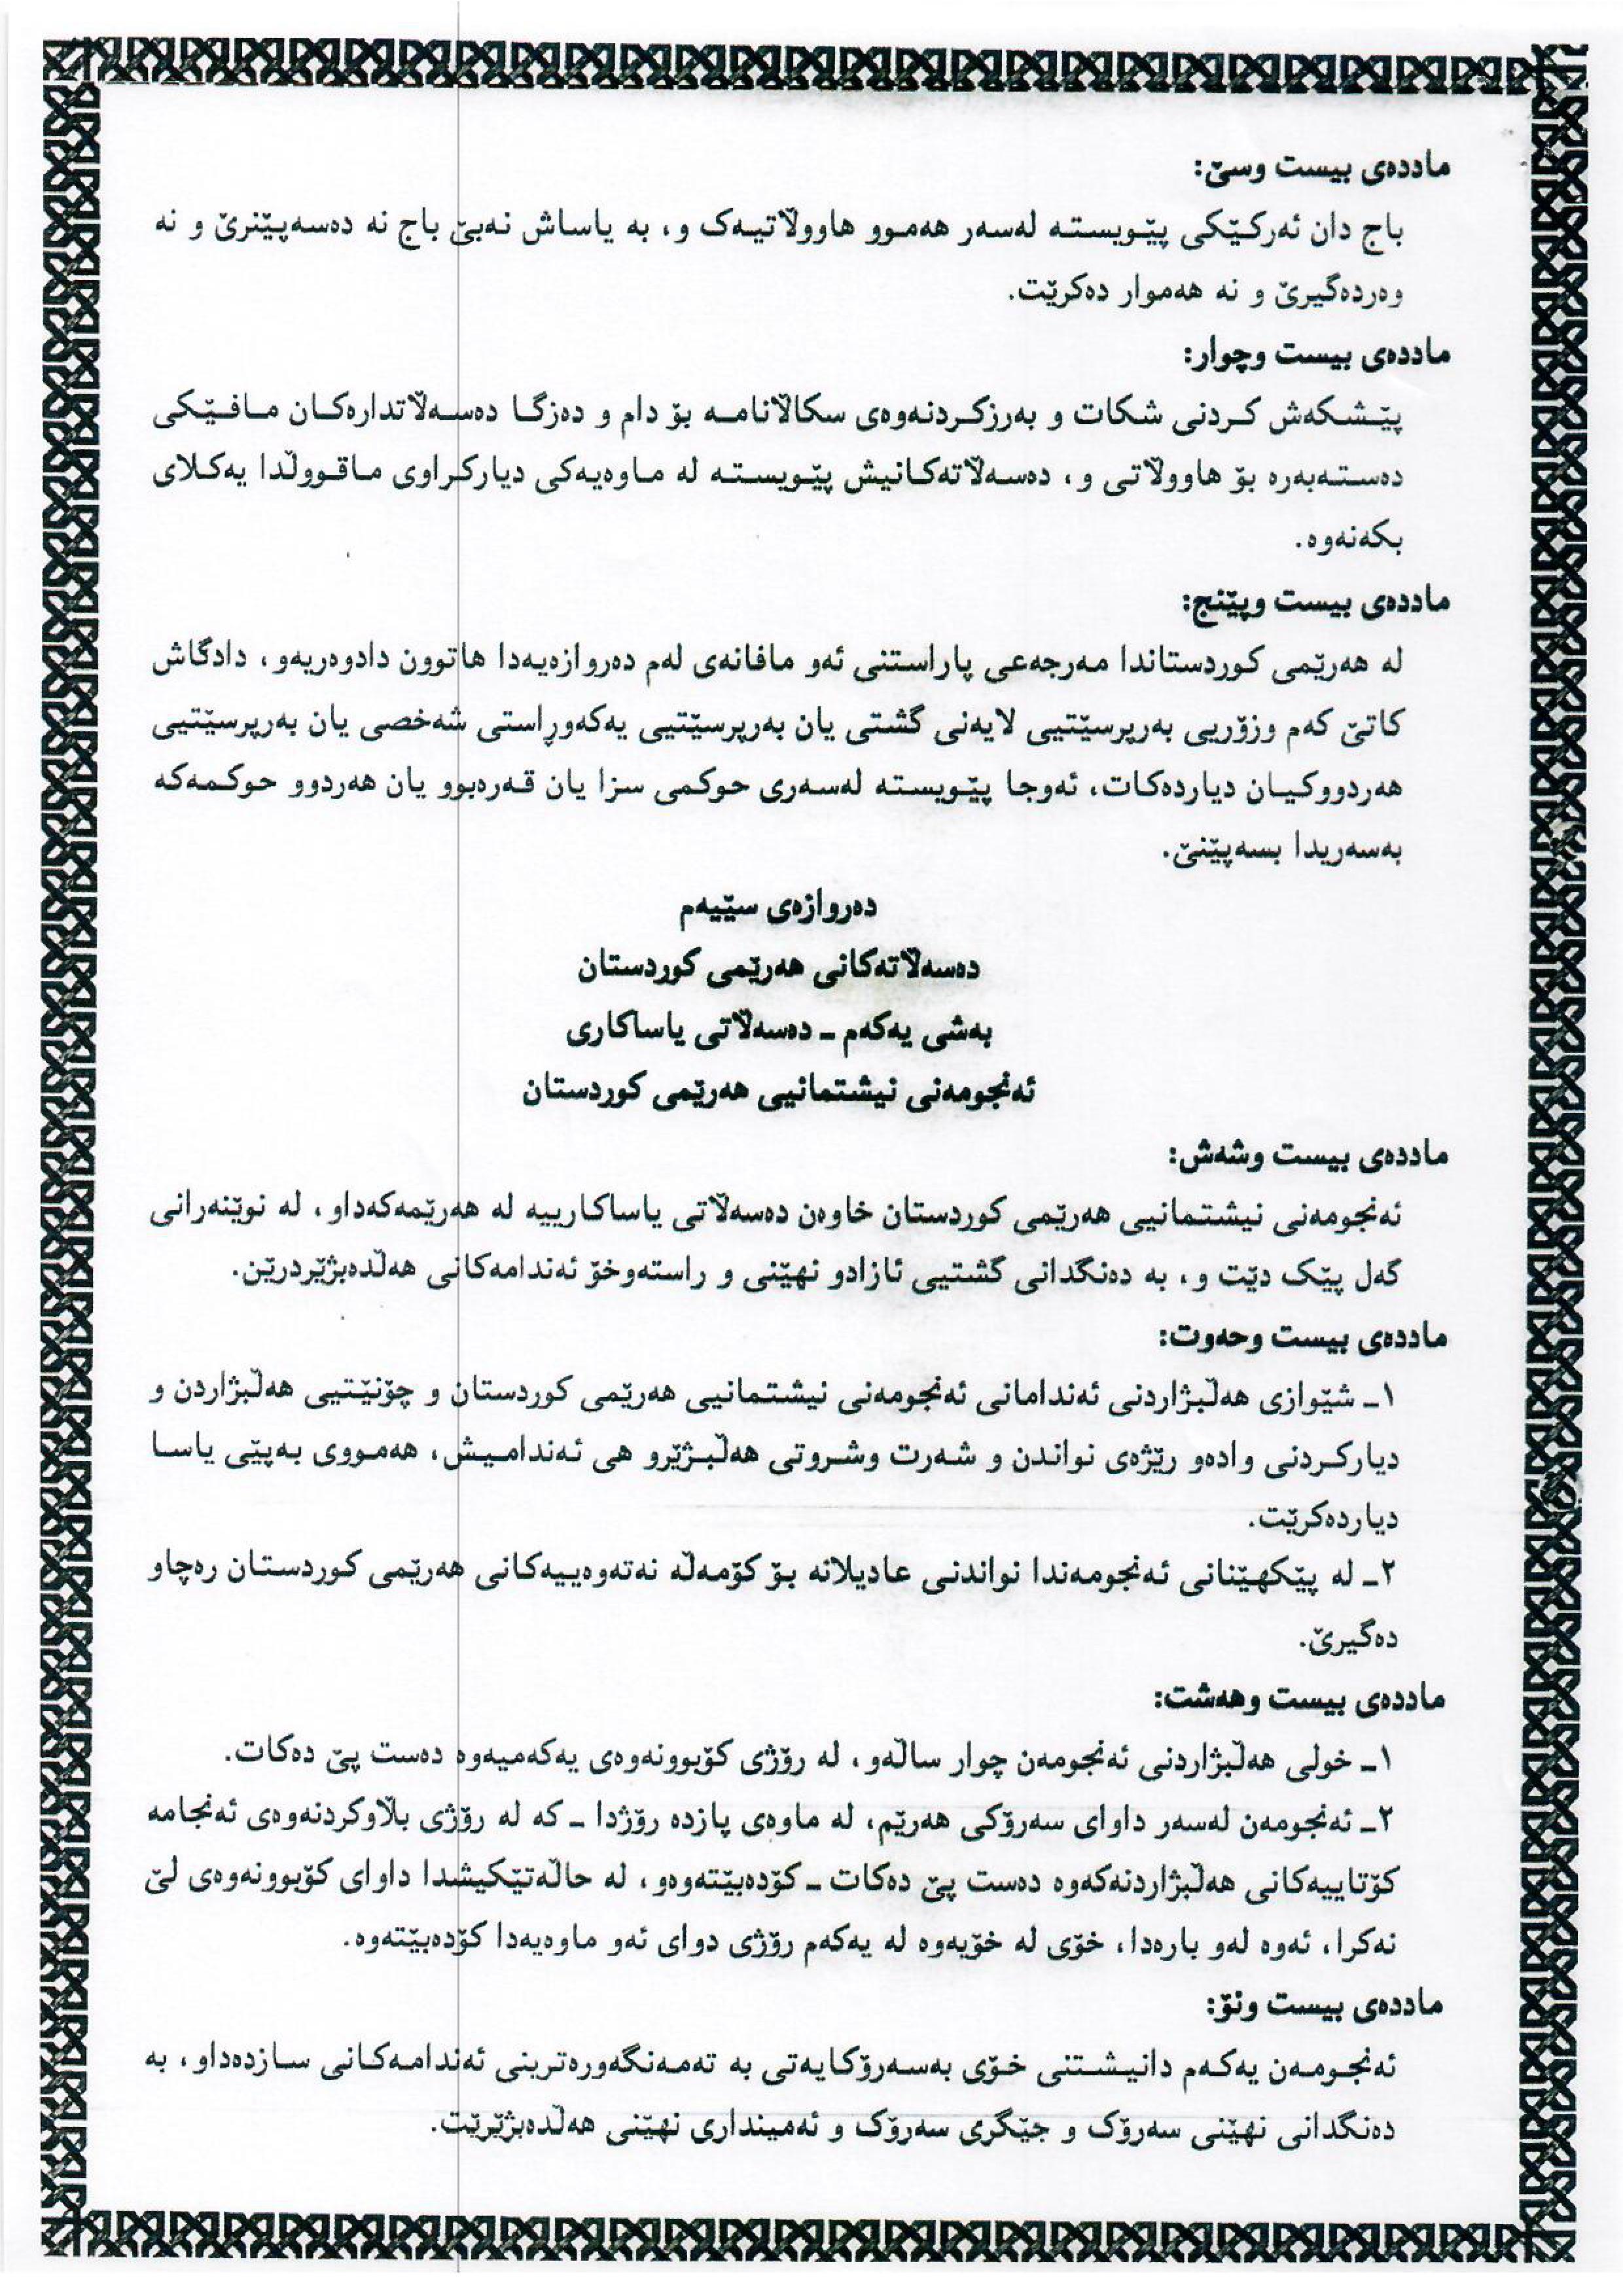 ماددەی بیست وسێ:
باج دان ئەرکێکی پێویستە لەسەر هەموو هاووڵاتیەک و، بە یاساش نەبێ باج نە دەسەپێنرێ و نە
وەردەگیرێ و نە هەموار دەکرێت.
ماددەی بیست وچوار:
پێشکەش کردنی شکات و بەرزکردنەوەی سکاڵانامە بۆ دام و دەزگا دەسەڵاتدارەکان مافێکی
دەستەبەرە بۆ هاووڵاتی و، دەسەڵاتەکانیش پێویستە لە ماوەیەکی دیارکراوی ماقووڵدا یەکلای
بکەنەوە.
ماددەی بیست وپێنج:
لە هەرێمی کوردستاندا مەرجەعی پاراستنی ئەو مافانەی لەم دەروازەیەدا هاتوون دادوەریەو، دادگاش
کاتێ کەم وزۆریی بەرپرسێتیی لایەنی گشتی یان بەرپرسێتیی یەکەوڕاستی شەخصی یان بەرپرسێتیی
هەردووکیان دیاردەکات، ئەوجا پێویستە لەسەری حوکمی سزا یان قەرەبوو یان هەردوو حوکمەکە
بەسەریدا بسەپێنێ.
دەروازەی سێیەم
دەسەڵاتەکانی هەرێمی کوردستان
بەشی یەکەم ـ دەسەڵاتی یاساکاری
ئەنجومەنی نیشتمانیی هەرێمی کوردستان
ماددەی بیست وشەش:
ئەنجومەنی نیشتمانیی هەرێمی کوردستان خاوەن دەسەڵاتی یاساکارییە لە هەرێمەکەداو، لە نوێنەرانی
گەل پێک دێت و، بە دەنگدانی گشتیی ئازادو نهێنی و راستەوخۆ ئەندامەکانی هەڵدەبژێردرێن.
ماددەی بیست وحەوت:
١ـ شێوازی هەڵبژاردنی ئەندامانی ئەنجومەنی نیشتمانیی هەرێمی کوردستان و چۆنێتیی هەڵبژاردن و
دیارکردنی وادەو رێژەی نواندن و شەرت وشروتی هەڵبژێرو هی ئەندامیش، هەمووی بەپێی یاسا
دیاردەکرێت.
٢ـ لە پێکهێنانی ئەنجومەندا نواندنی عادیلانە بۆ کۆمەڵە نەتەوەییەکانی هەرێمی کوردستان رەچاو
دەگیرێ.
ماددەی بیست وهەشت:
١ـ خولی هەڵبژاردنی ئەنجومەن چوار ساڵەو، لە رۆژی کۆبوونەوەی یەکەمیەوە دەست پێ دەکات.
٢ـ ئەنجومەن لەسەر داوای سەرۆکی هەرێم، لە ماوەی پازدە رۆژدا ـ کە لە رۆژی بڵاوکردنەوەی ئەنجامە
کۆتاییەکانی هەڵبژاردنەکەوە دەست پێ دەکات ـ کۆدەبێتەوەو، لە حاڵەتێکیشدا داوای کۆبوونەوەی لێ
نەکرا، ئەوە لەو بارەدا، خۆی لە خۆیەوە لە یەکەم رۆژی دوای ئەو ماوەیەدا کۆدەبێتەوە.
ماددەی بیست ونۆ:
ئەنجومەن یەکەم دانیشتنی خۆی بەسەرۆکایەتی بە تەمەنگەورەترینی ئەندامەکانی سازدەداو، بە
دەنگدانی نهێنی سەرۆک و جێگری سەرۆک و ئەمینداری نهێنی هەڵدەبژێرێت.